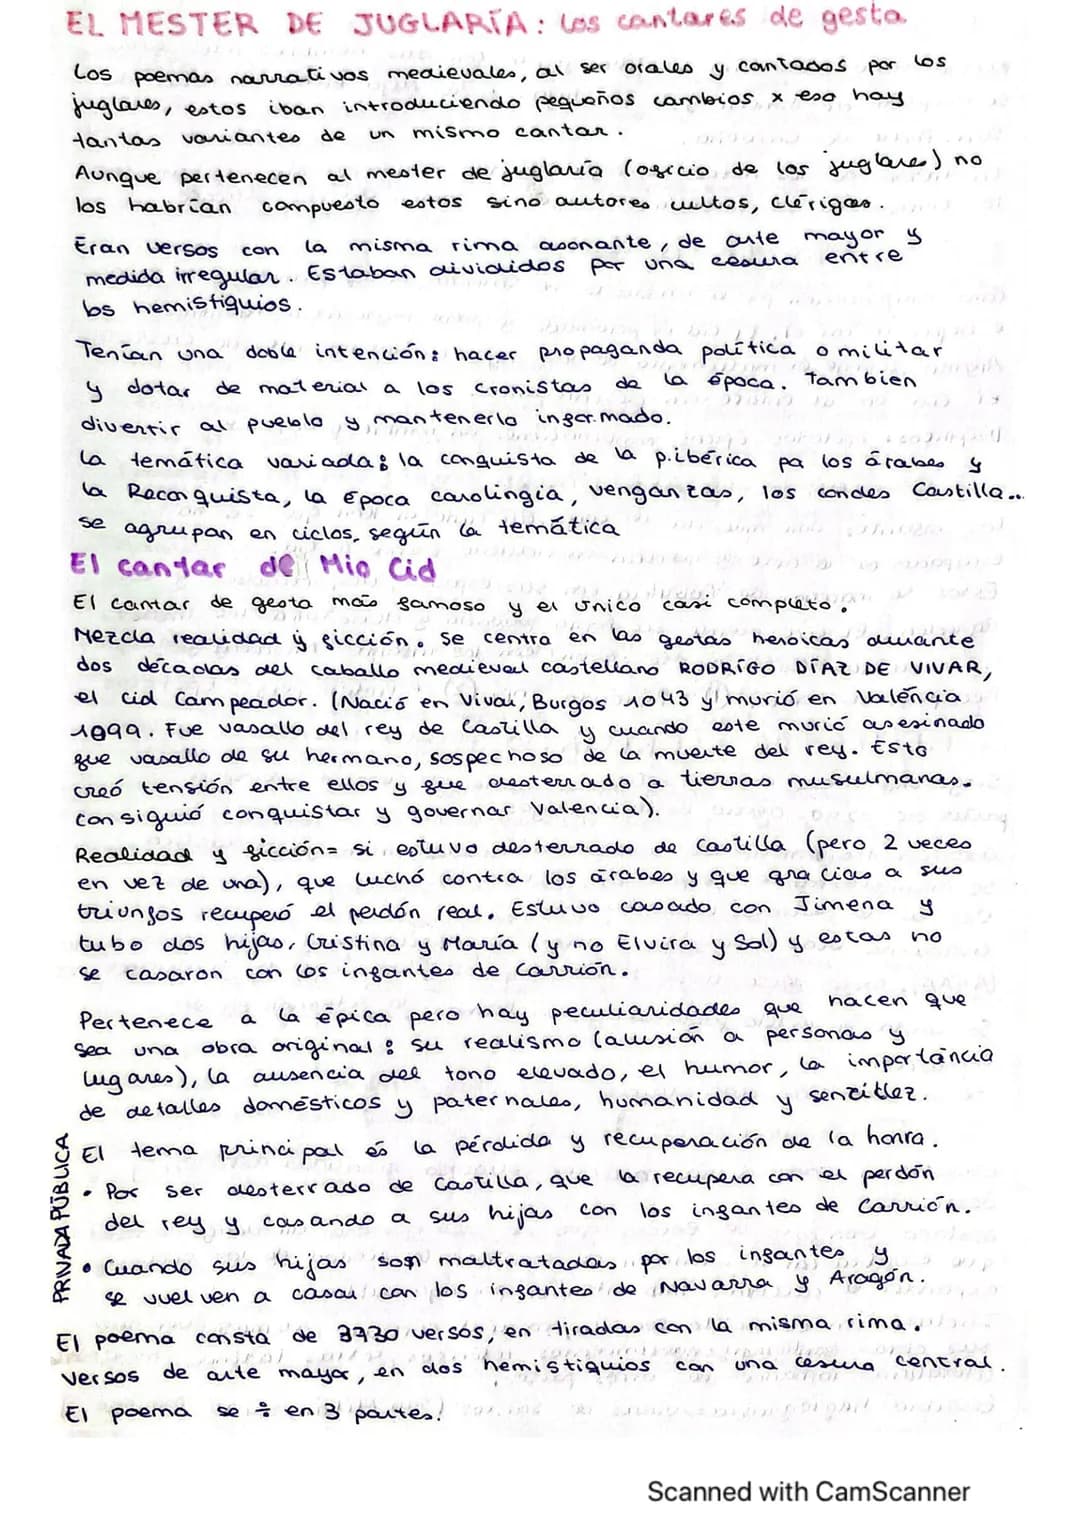 EL MESTER DE JUGLARÍA: los cantares de gesta
Los poemas narrativos medievales, al ser orales y cantados por los
juglares, estos iban introduciendo pequeños cambios x eso hay
tantas variantes de un mismo cantar.
Aunque pertenecen al mester de juglaría (oficio de los juglares) no
los habrían compuesto estos sino autores cultos, clérigos.
Eran versos con la misma rima asonante, de arte mayor y
medida irregular. Estaban divididos por una cesura entre
los hemistiquios.
Tenían una doble intención: hacer propaganda política o militar
y dotar de material a los cronistas de la época. Tambien
divertir al pueblo y mantenerlo informado.
La temática variada: la conquista de la p.ibérica pa los árabes y
la Reconquista, la época carolingia, venganzas, los condes Castilla...
se agrupan en ciclos, según la temática
El cantar de Mio Cid
El cantar de gesta más famoso y el único casi completo.
Mezcla realidad y ficción. Se centra en las gestas heróicas durante
dos décadas del caballo medieval castellano RODRÍGO DÍAZ DE VIVAR,
el cid Campeador. (Nació en Vivar, Burgos 1043 y murió en Valencia
1099. Fue vasallo del rey de Castilla y cuando este murió asesinado
fue vasallo de su hermano, sospechoso de la muerte del rey. Esto
creó tensión entre ellos y fue desterrado a tierras musulmanas.
consiguió conquistar y governar Valencia).
Realidad y ficción= si estuvo desterrado de Castilla (pero 2 veces
en vez de una), que luchó contra los árabes y que gracias a sus
triunfos recuperó el perdón real. Estuvo casado con Jimena y
tubo dos hijas, Cristina y María (y no Elvira y Sol) y estas no
se casaron con los infantes de Carrión.
Pertenece a la épica pero hay peculiaridades que hacen que
sea una obra original: su realismo (alusión a personas y
lugares), la ausencia del tono elevado, el humor, la importáncia
de detalles domésticos y paternales, humanidad y senzillez.
El tema principal és la pérdida y recuperación de la honra.
PRIVADA PÚBLICA
• Por ser desterrado de Castilla, que la recupera con el perdón
del rey y casando a sus hijas con los infantes de Carrión.
• Cuando sus hijas son maltratadas por los infantes y
se vuelven a casar con los infantes de Navarra y Aragón.
El poema consta de 3730 versos, en tiradas con la misma rima.
Versos de arte mayor, en dos hemistiquios con una cesura central.
El poema se ÷ en 3 partes:
Scanned with CamScanner